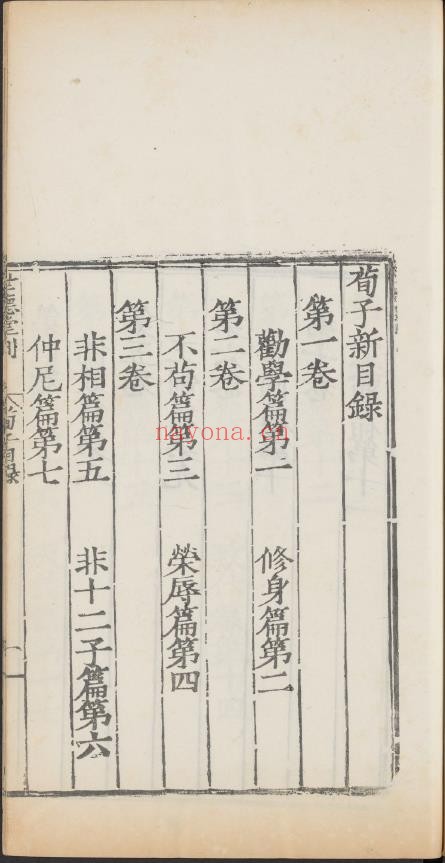 荀子新目錄
第一卷
勸學篇第一 修身篇第二
第二卷
不茍篇第三 榮辱篇第四
第三卷
非相篇第五 非十二子篇第六
仲尼篇第七
世德堂刊 荀子目錄 一
nayona.cn